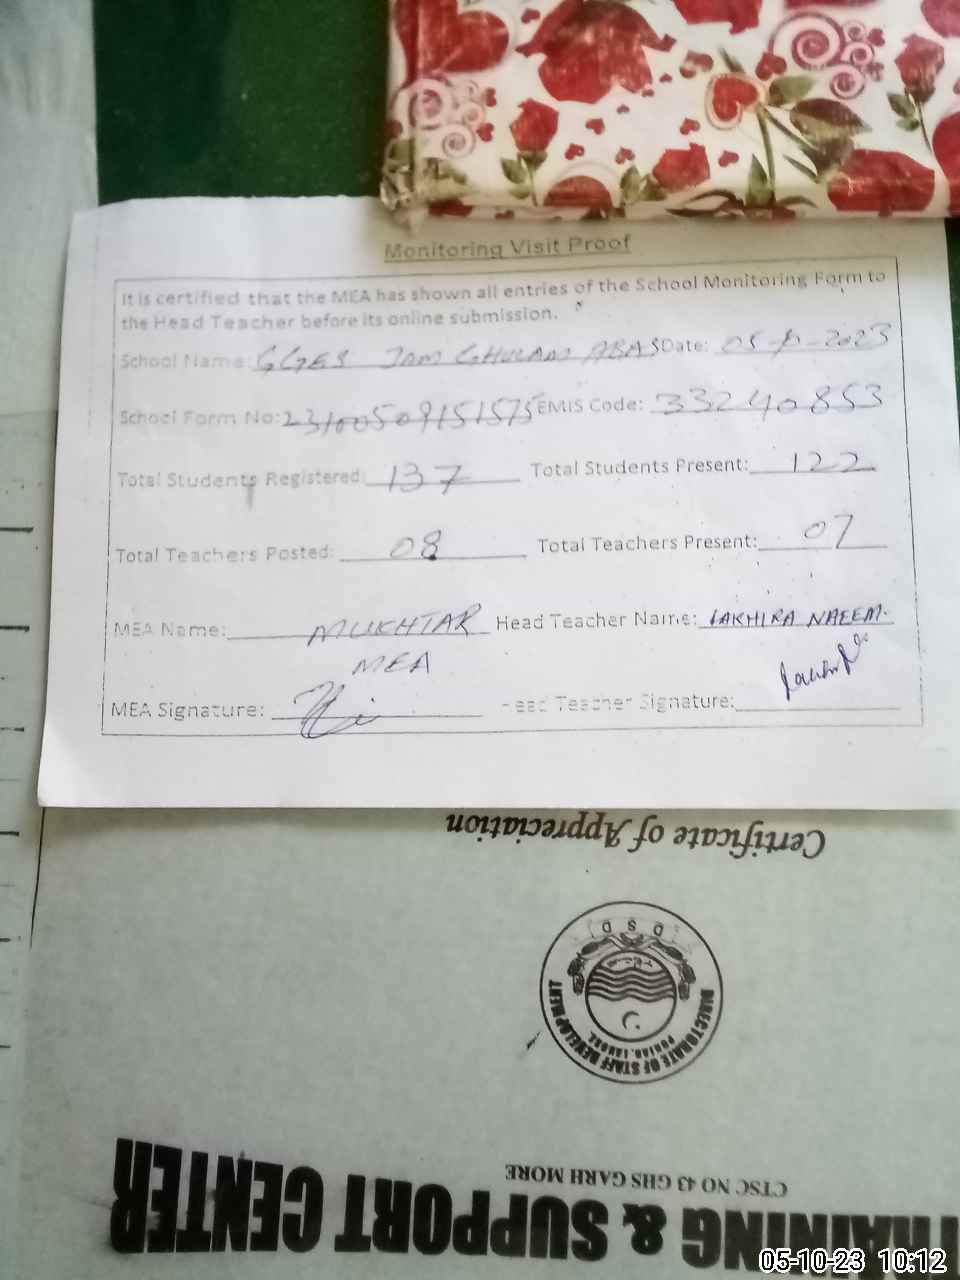 Monitoring Visit Proof
It is certified that the MEA has shown all entries of the School Monitoring Form to
the Head Teacher before its online submission.
School Name: GGES JAM GHULAM ABAS Date: 05-10-2023
School Form No: 23100509151575 EMIS Code: 33240853
Total Students Registered: 137 Total Students Present: 122
Total Teachers Posted: 08 Total Teachers Present: 07
MEA Name: MUKHTAR Head Teacher Name: NAEEM.
MEA
MEA Signature: Head Teacher Signature:
Certificate of Appreciation
D S D
DIRECTORATE OF STAFF DEVELOPMENT
PUNJAB, LAHORE
CTSC NO 43 GHS GARH MORE
TRAINING & SUPPORT CENTER
05-10-23 10:12